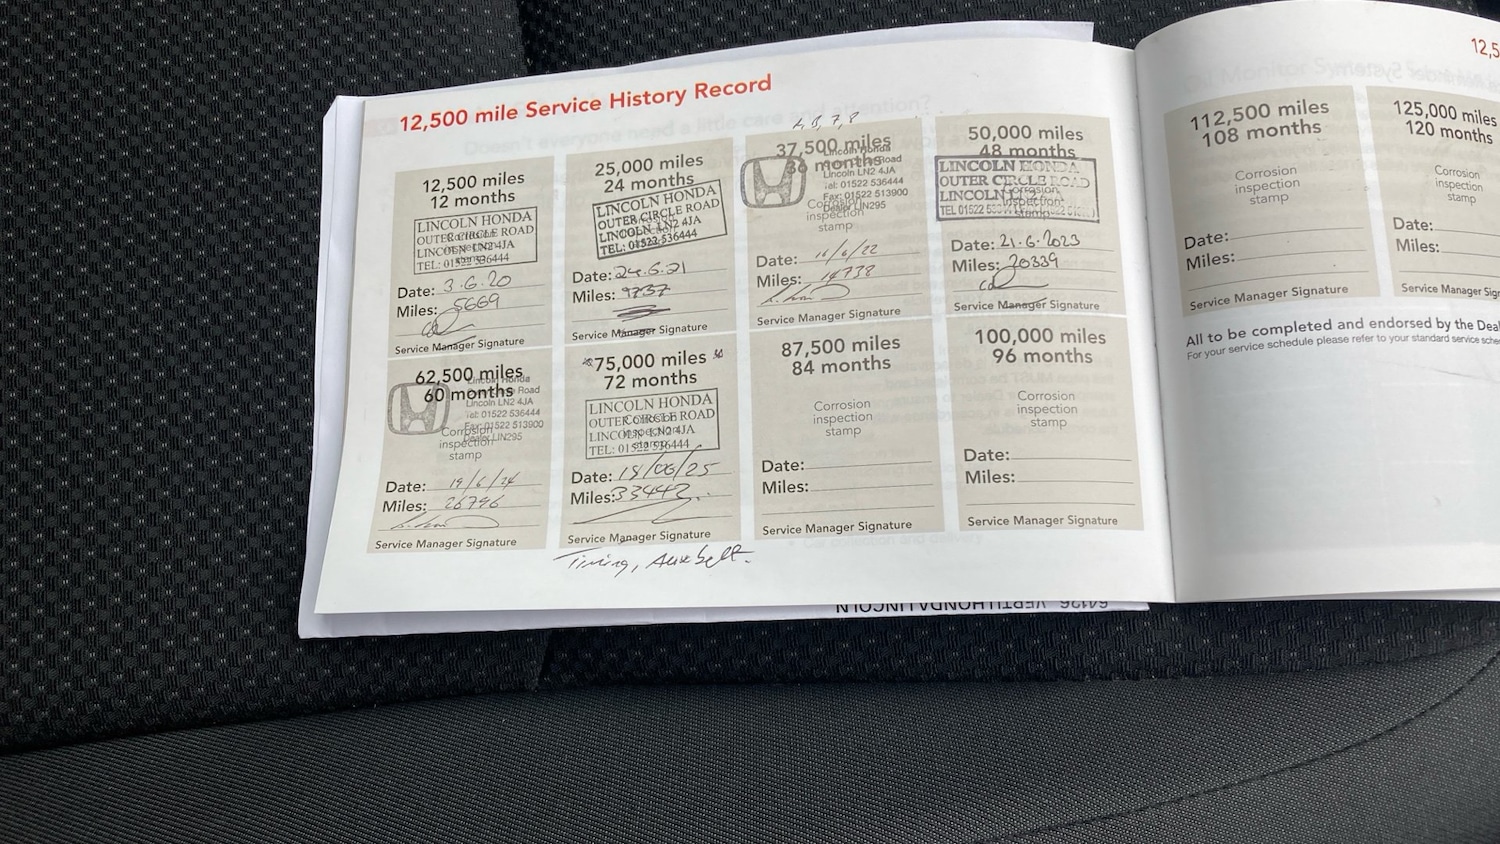 12,500 mile Service History Record
12,500 miles
12 months
LINCOLN HONDA
OUTER CIRCLE ROAD
LINCOLN LN2 4JA
TEL: 01522 536444
Date: 3.6.20
Miles: 5669
Service Manager Signature
25,000 miles
24 months
LINCOLN HONDA
OUTER CIRCLE ROAD
LINCOLN LN2 4JA
TEL: 01522 536444
Date: 24.6.21
Miles: 9737
Service Manager Signature
37,500 miles
36 months
Lincoln Honda
Road
Lincoln LN2 4JA
Tel: 01522 536444
Fax: 01522 513900
Dealer LIN295
Corrosion
inspection
stamp
Date: 16/6/22
Miles: 14738
Service Manager Signature
50,000 miles
48 months
LINCOLN HONDA
OUTER CIRCLE ROAD
LINCOLN
TEL 01522
Corrosion
inspection
stamp
Date: 21.6.2023
Miles: 20339
Service Manager Signature
62,500 miles
60 months
Lincoln Honda
Road
Lincoln LN2 4JA
Tel: 01522 536444
Fax: 01522 513900
Dealer LIN295
Corrosion
inspection
stamp
Date: 19/6/24
Miles: 26796
Service Manager Signature
75,000 miles
72 months
LINCOLN HONDA
OUTER CIRCLE ROAD
LINCOLN LN2 4JA
TEL: 01522 536444
Date: 18/06/25
Miles: 33442
Service Manager Signature
Timing, Aux belt.
87,500 miles
84 months
Corrosion
inspection
stamp
Date:
Miles:
Service Manager Signature
100,000 miles
96 months
Corrosion
inspection
stamp
Date:
Miles:
Service Manager Signature
12,5
112,500 miles
108 months
Corrosion
inspection
stamp
Date:
Miles:
Service Manager Signature
125,000 miles
120 months
Corrosion
inspection
stamp
Date:
Miles:
Service Manager Sig
All to be completed and endorsed by the Deal
For your service schedule please refer to your standard service sche
64126 VERTU HONDA LINCOLN